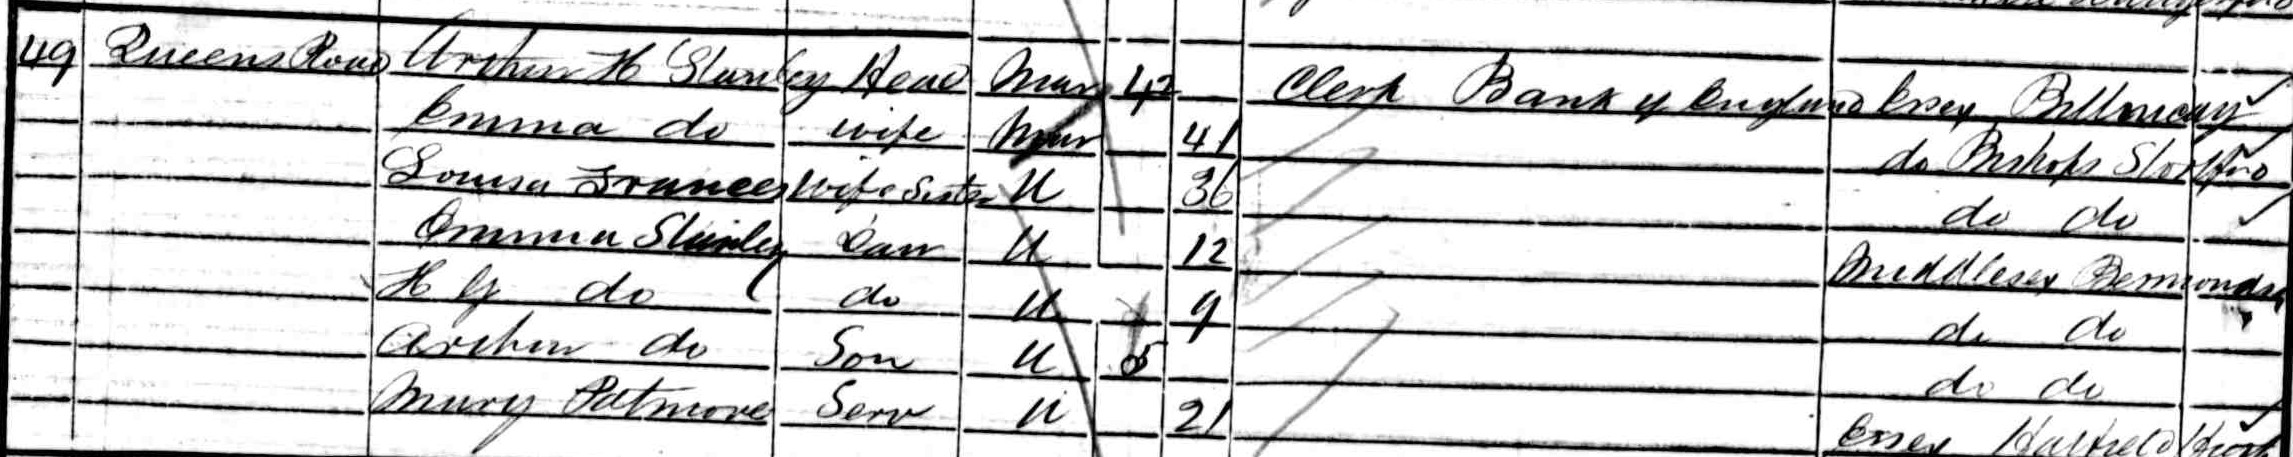 49 Queens Road Arthur H Stanley Head Mar 42 Clerk Bank of England Essex Billericay
Emma do wife Mar 41 do Bishops Stortford
Louisa Frances Wife Sister U 36 do do
Emma Stanley Daur U 12 Middlesex Bermondsey
H G do do U 9 do do
Arthur do Son U 5 do do
Mary Patmore Serv U 21 Essex Hatfield